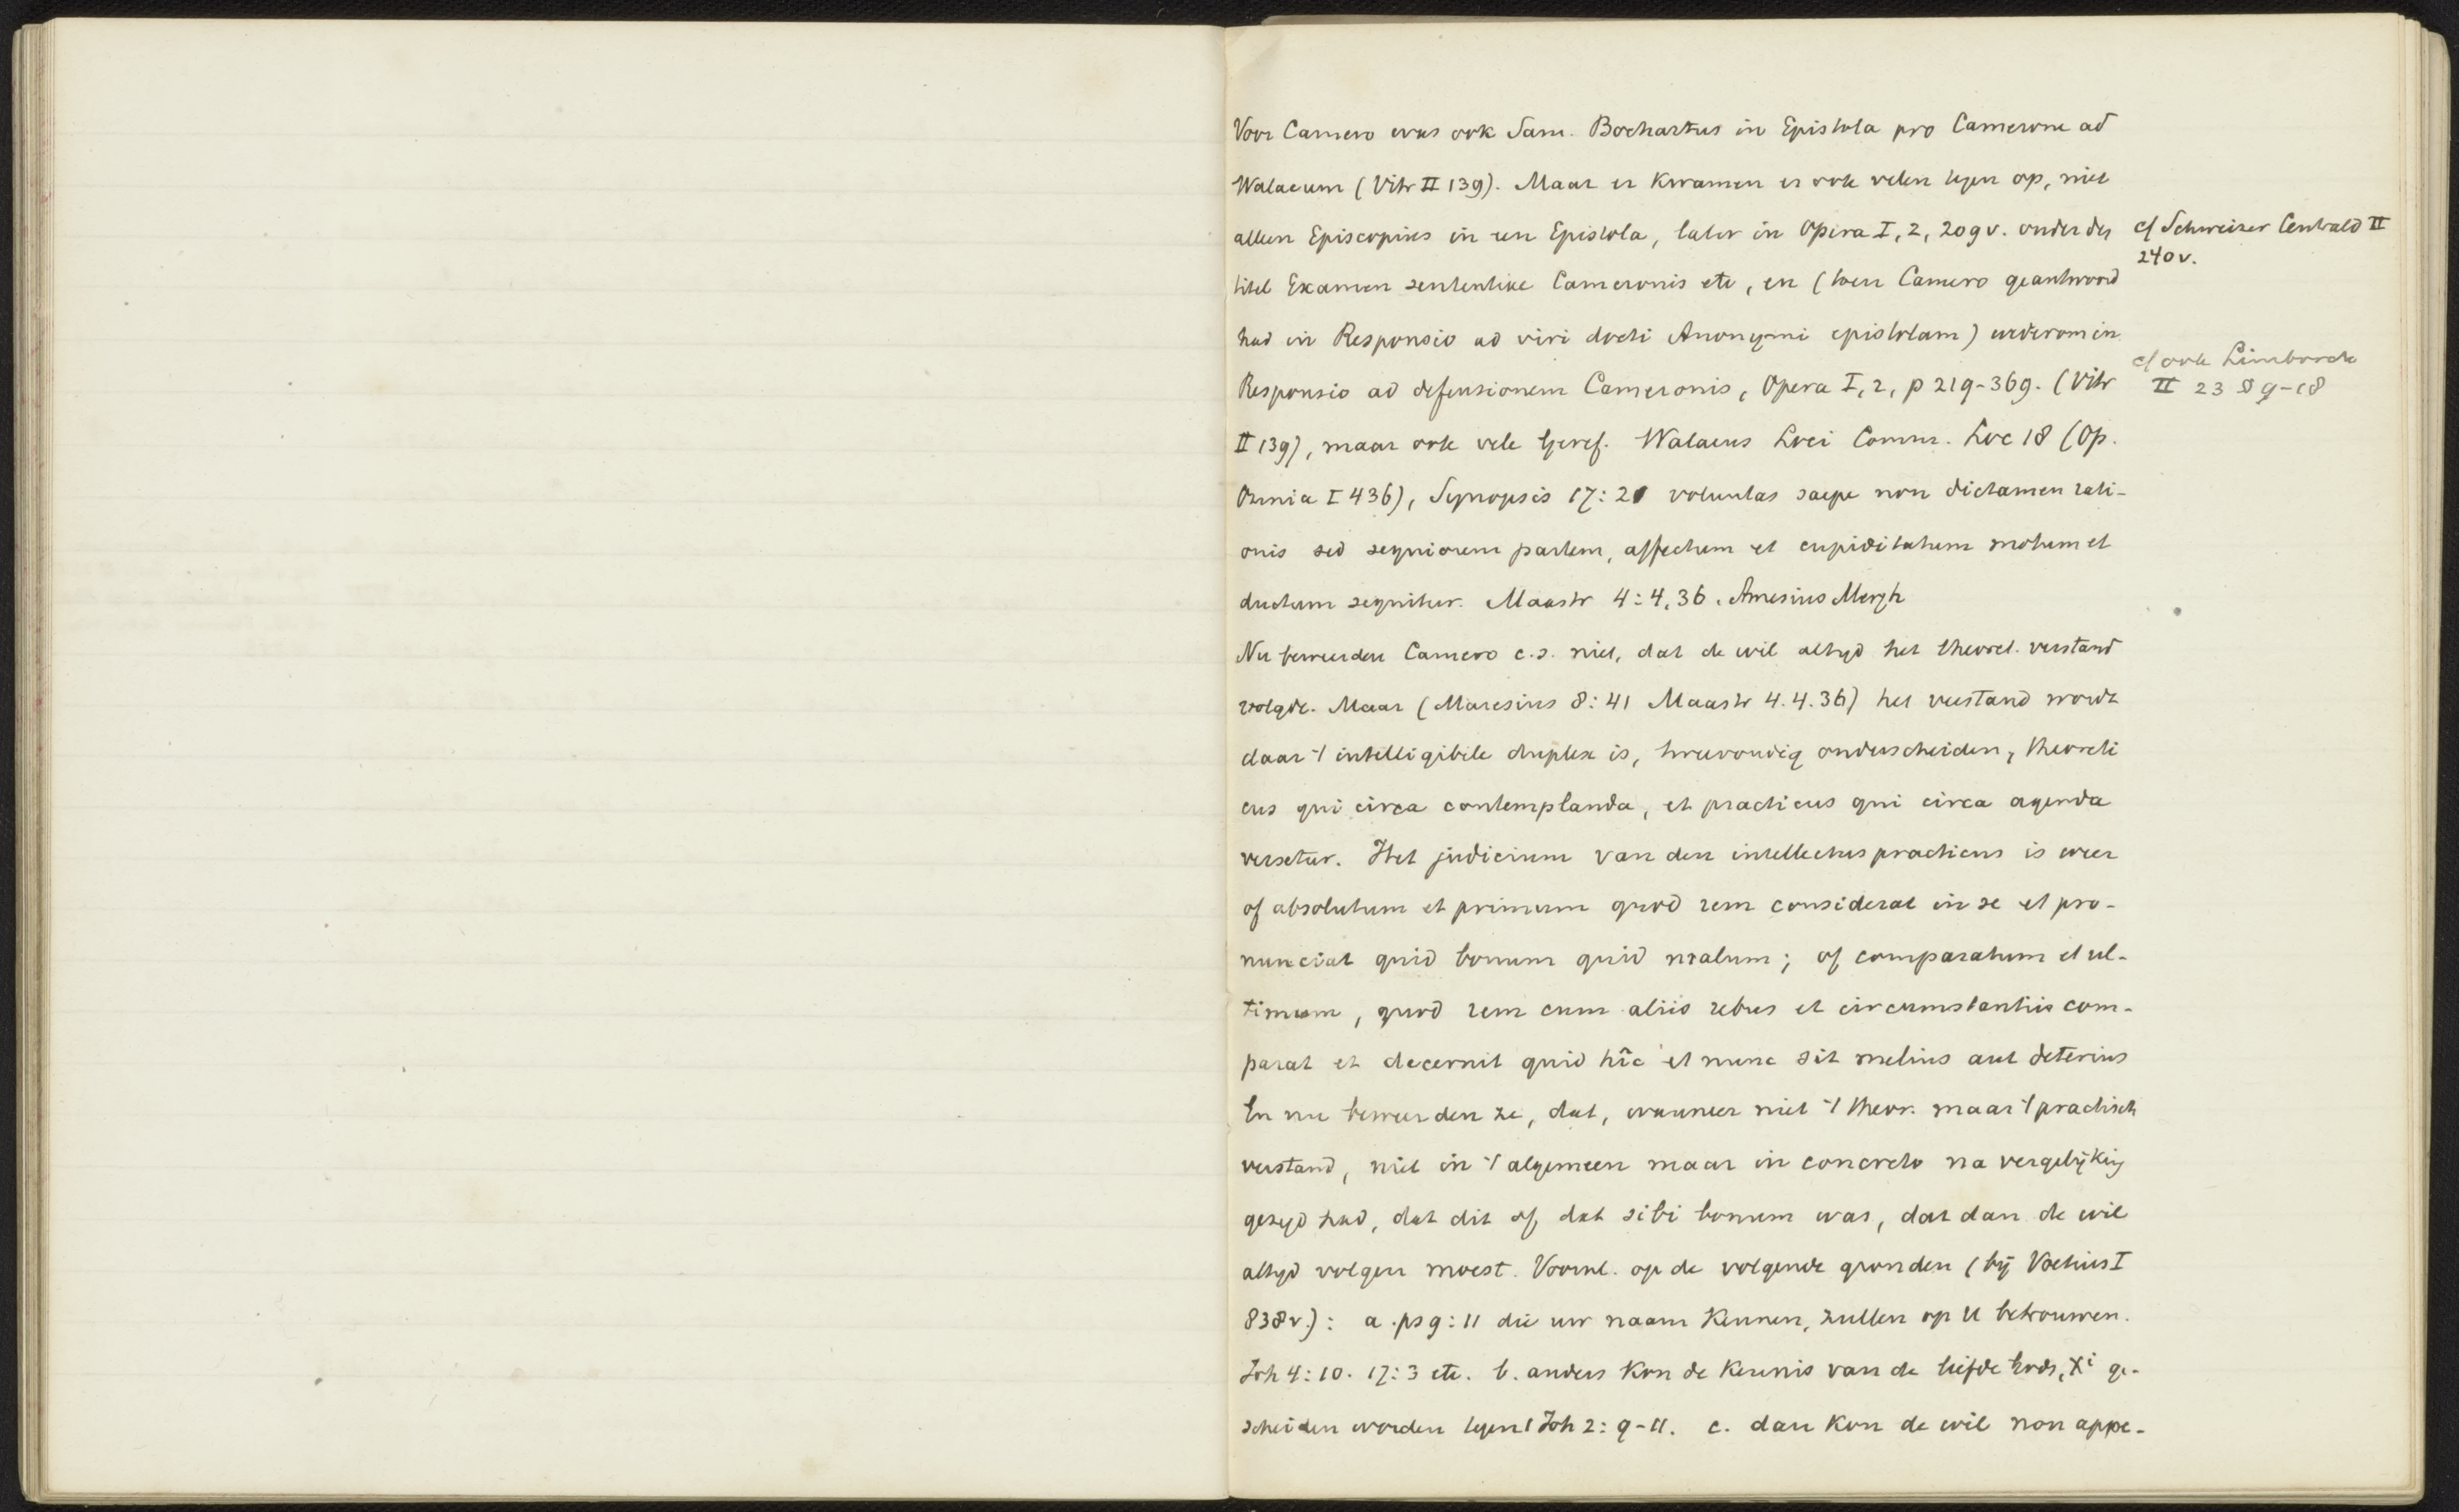 Voor Camero was ook Sam. Bochartus in Epistola pro Camerone ad
Walaeum (Vitr II 139). Maar er kwamen er ook velen tegen op, niet
alleen Episcopius in een Epistola, later in Opera I, 2, 209 v. onder den
titel Examen sententiae Cameronis etc, en (toen Camero geantwoord
had in Responsio ad viri docti Anonymi epistolam) wederom in
Responsio ad defensionem Cameronis, Opera I, 2, p 219-369. (Vitr
II 139), maar ook vele Geref. Walaeus Loci Comm. Loc 18 (Op.
Omnia I 436), Synopsis 17: 21 voluntas saepe non dictamen rati-
onis sed segniorem partem, affectum et cupiditatum motum et
ductum sequitur. Maastr 4:4,36. Amesius Mergh
Nu beweerden Camero c.s. niet, dat de wil altyd het theoret. verstand
volgde. Maar (Maresius 8:41 Maastr 4.4.36) het verstand wordt
daar 't intelligibile duplex is, tweevoudig onderscheiden, theoreti
cus qui circa contemplanda, et practicus qui circa agenda
versetur. Het judicium van den intellectus practicus is weer
of absolutum et primum quod rem considerat in se et pro-
nunciat quid bonum quid malum; of comparatum et ul-
timum, quod rem cum aliis rebus et circumstantiis com-
parat et decernit quid hîc et nunc sit melius aut deterius
En nu beweerden ze, dat, wanneer niet 't theor. maar 't practisch
verstand, niet in 't algemeen maar in concreto na vergelijking
gezegd had, dat dit of dat sibi bonum was, dat dan de wil
altyd volgen moest. Voornl. op de volgende gronden (bij Voetius I
838 v.): a. ps 9:11 die uw naam kennen, zullen op U betrouwen.
Joh 4:10. 17:3 etc. b. anders kon de kennis van de liefde Gods, Xi ge-
scheiden worden tegen 1 Joh 2:9-11. c. dan kon de wil non appe-
cf Schweizer Centrald II
240 v.
cf ook Limborch
II 23 § 9-18